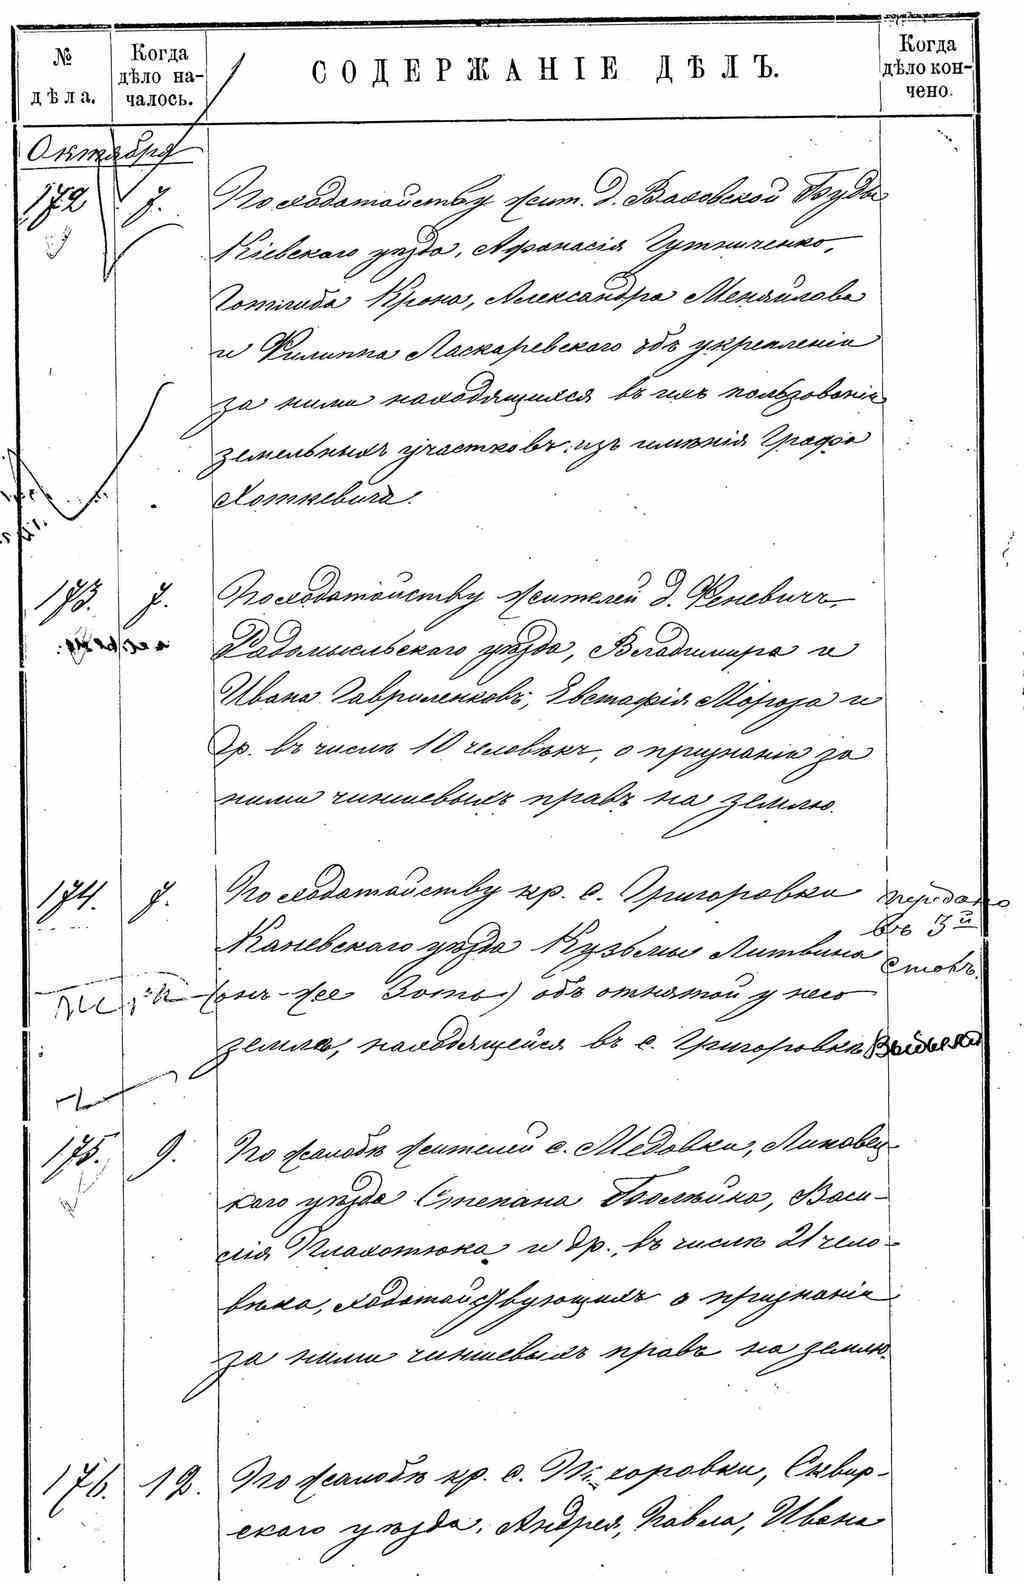 № дѣла.
Когда дѣло началось.
СОДЕРЖАНІЕ ДѢЛЪ.
Когда дѣло кончено.
Октября
172 7. По ходатайству жит. д. Ваховской Буды
Кіевскаго уѣзда, Афанасія Гутниченко,
Готлиба Кроно, Александра Меняйлова
и Филиппа Ласкаревского объ укрепленіи
за ними находящихся въ ихъ пользованіи
земельныхъ участковъ изъ имѣнія Графа
Хоткевича.
173. 7. По ходатайству жителей д. Феневичъ,
Радомысльскаго уѣзда, Владимира и
Ивана Гавриленковъ, Евстафія Мороза и
др. въ числѣ 10 человѣкъ, о признаніи за
ними чиншевыхъ правъ на землю.
174. 7. По ходатайству кр. с. Григоровки
Каневскаго уѣзда Кузьмы Литвина
(онъ-же Зоть) объ отнятой у него
землѣ, находящейся въ с. Григоровкѣ
передано
въ 3й
столъ.
175. 9. По жалобѣ жителей с. Медовки, Липовец-
каго уѣзда Степана Болѣйко, Васи-
лія Плахотнюка и др., въ числѣ 21 чело-
вѣка, ходатайствующихъ о признаніи
за ними чиншевыхъ правъ на землю.
176. 12. По жалобѣ кр. с. Тихоровки, Сквир-
скаго уѣзда, Андрея, Павла, Ивана